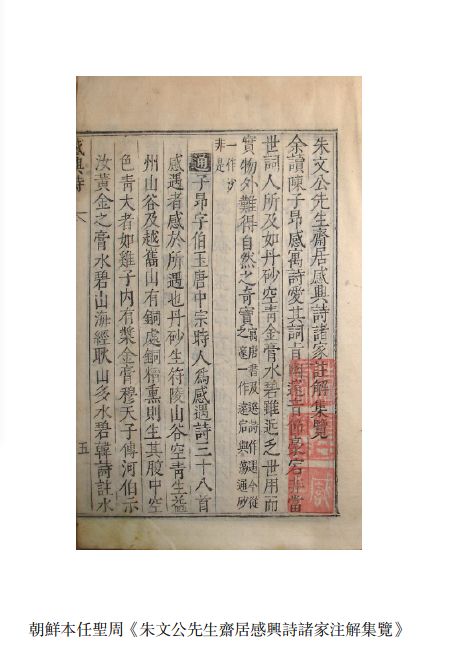 朱文公先生齋居感興詩諸家註解集覽
余讀陳子昂感寓詩愛其詞旨幽邃音節豪宕非當
世詞人所及如丹砂空青金膏水碧雖近乏世用而
實物外難得自然之奇寶寓唐書及選詩作遇今從
之邃一作遠宕與蕩通砂
一作沙
非是
通子昂字伯玉唐中宗時人爲感遇詩三十八首
感遇者感於所遇也丹砂生符陵山谷空青生益
州山谷及越嶲山有銅處銅精熏則生其腹中空
色青大者如雞子內有漿金膏穆天子傳河伯示
汝黃金之膏水碧山海經耿山多水碧韓詩註水
感興詩 五
朝鮮本任聖周《朱文公先生齋居感興詩諸家注解集覽》